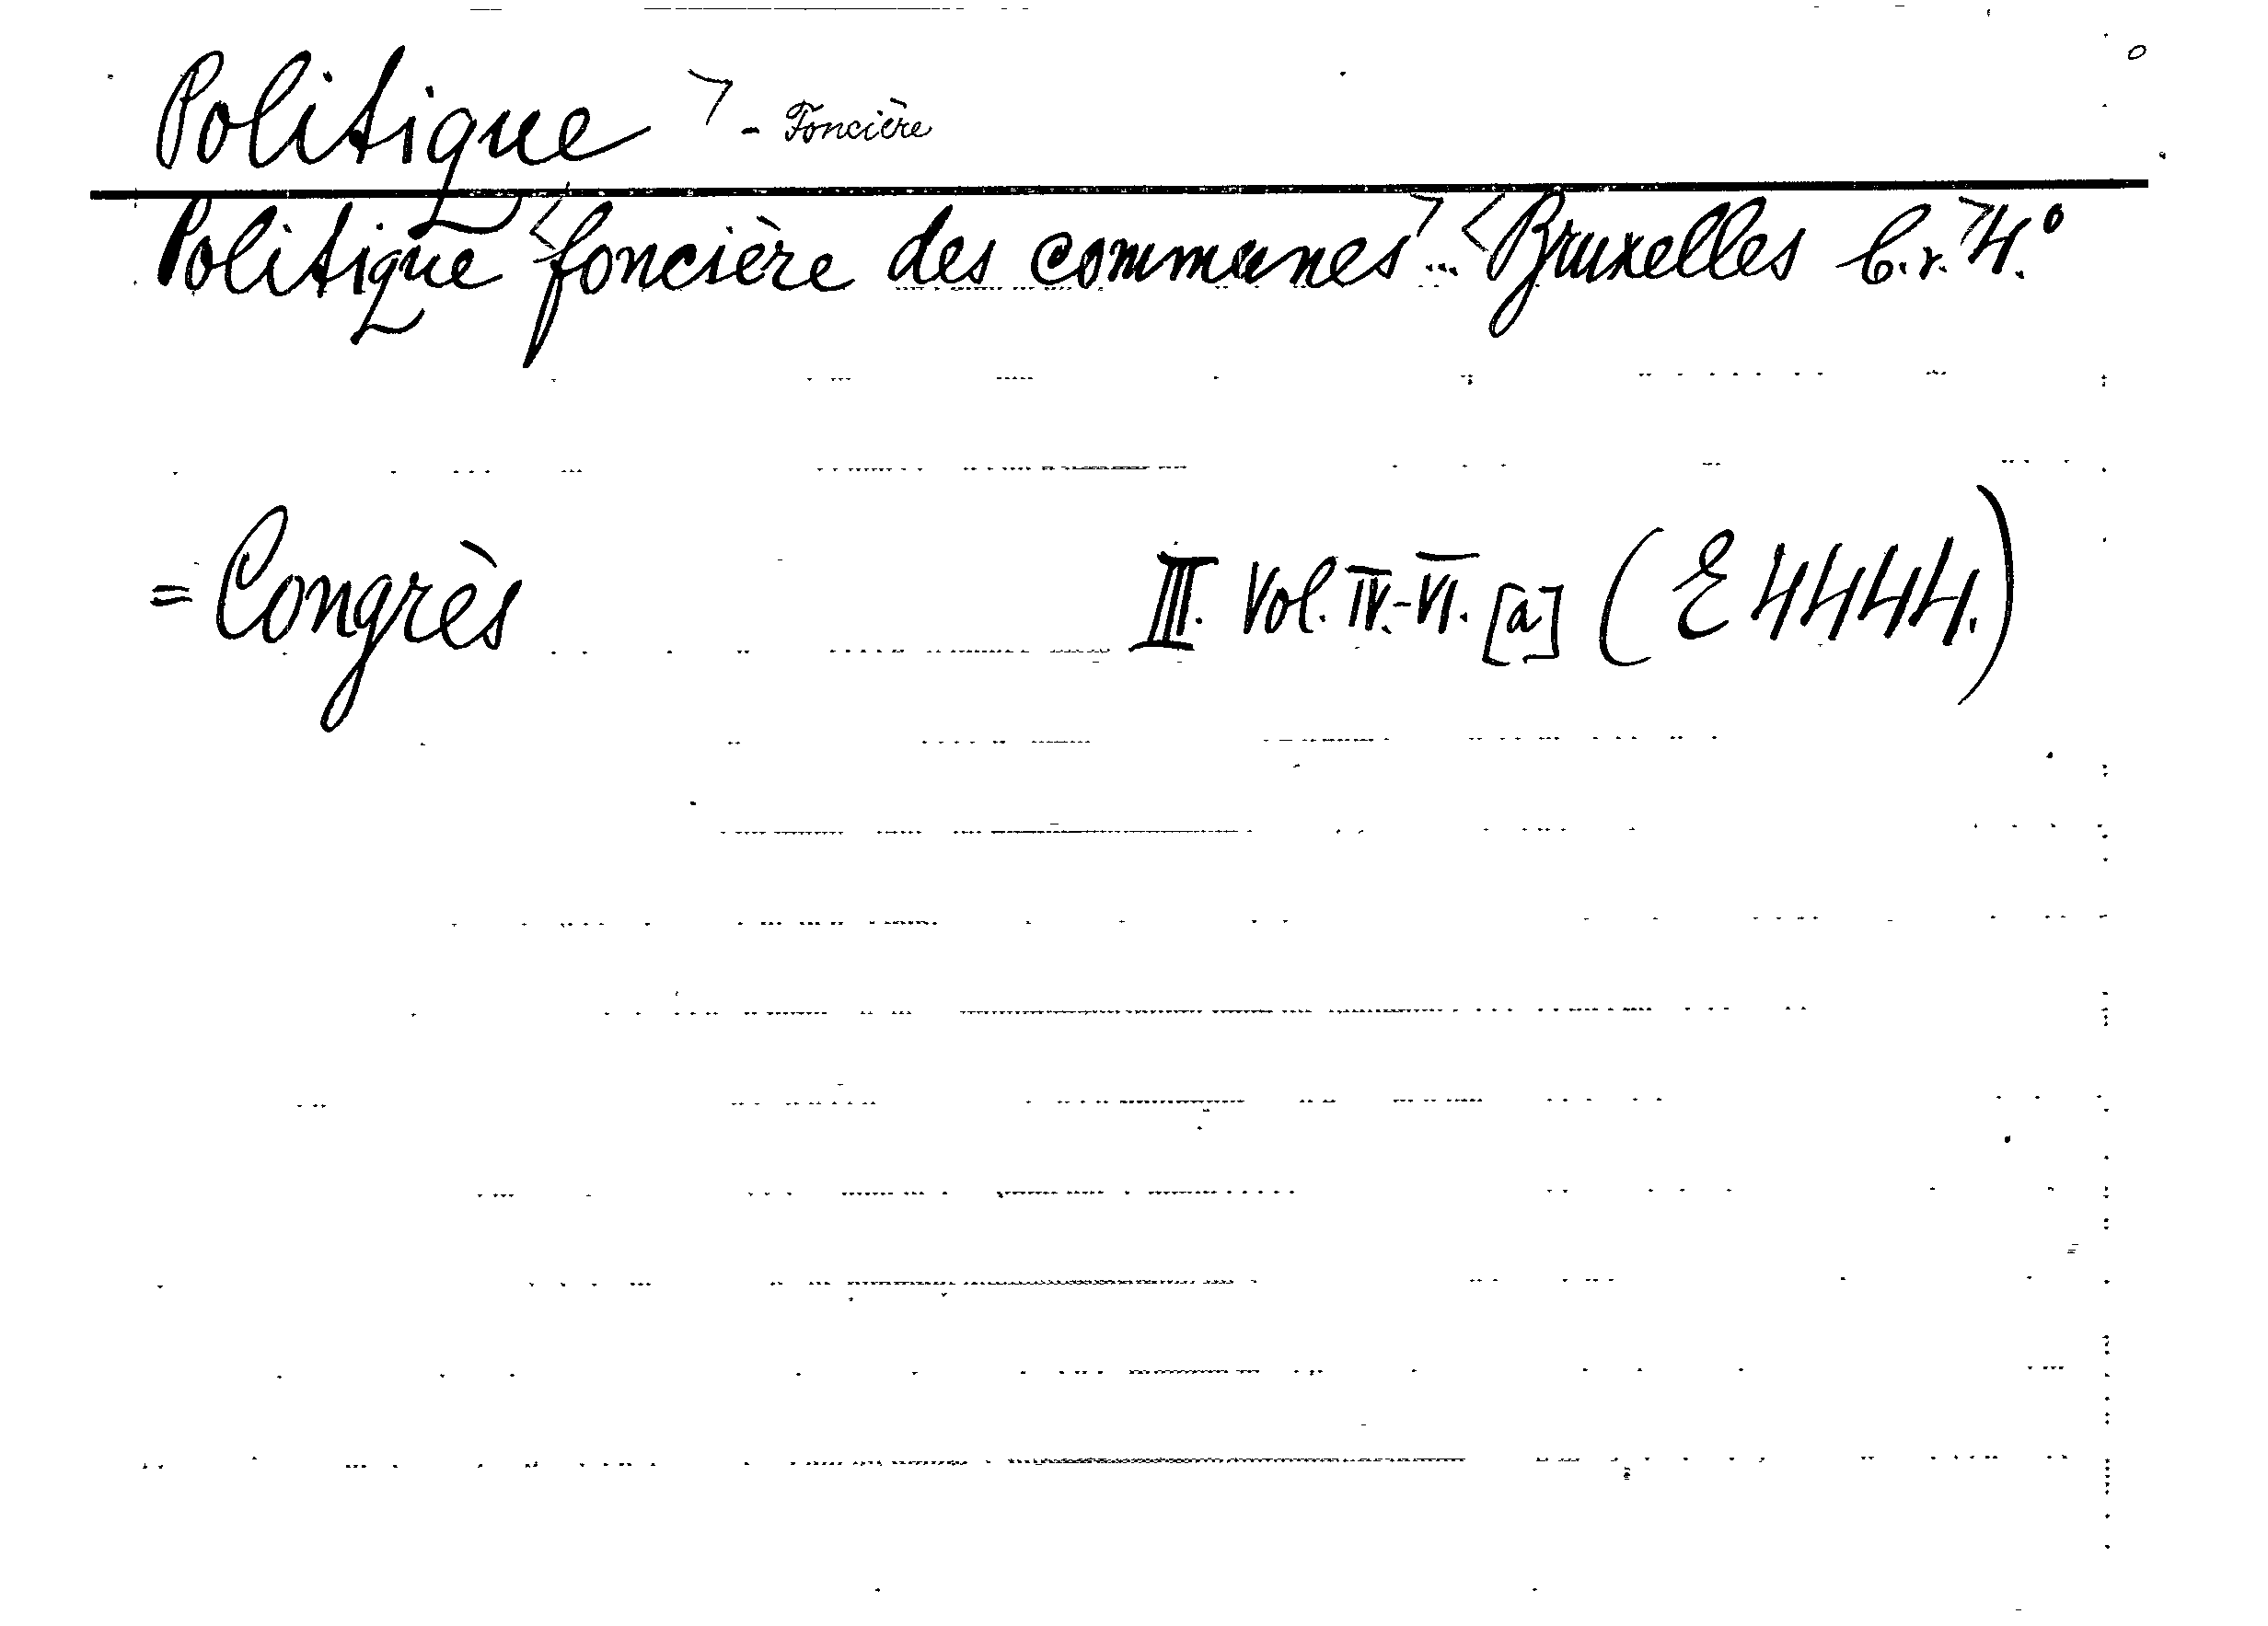 Politique - Foncière
Politique foncière des communes... Bruxelles b.r. 4.°
= Congrès III. Vol. IV.-VI. [a] (E 4444.)